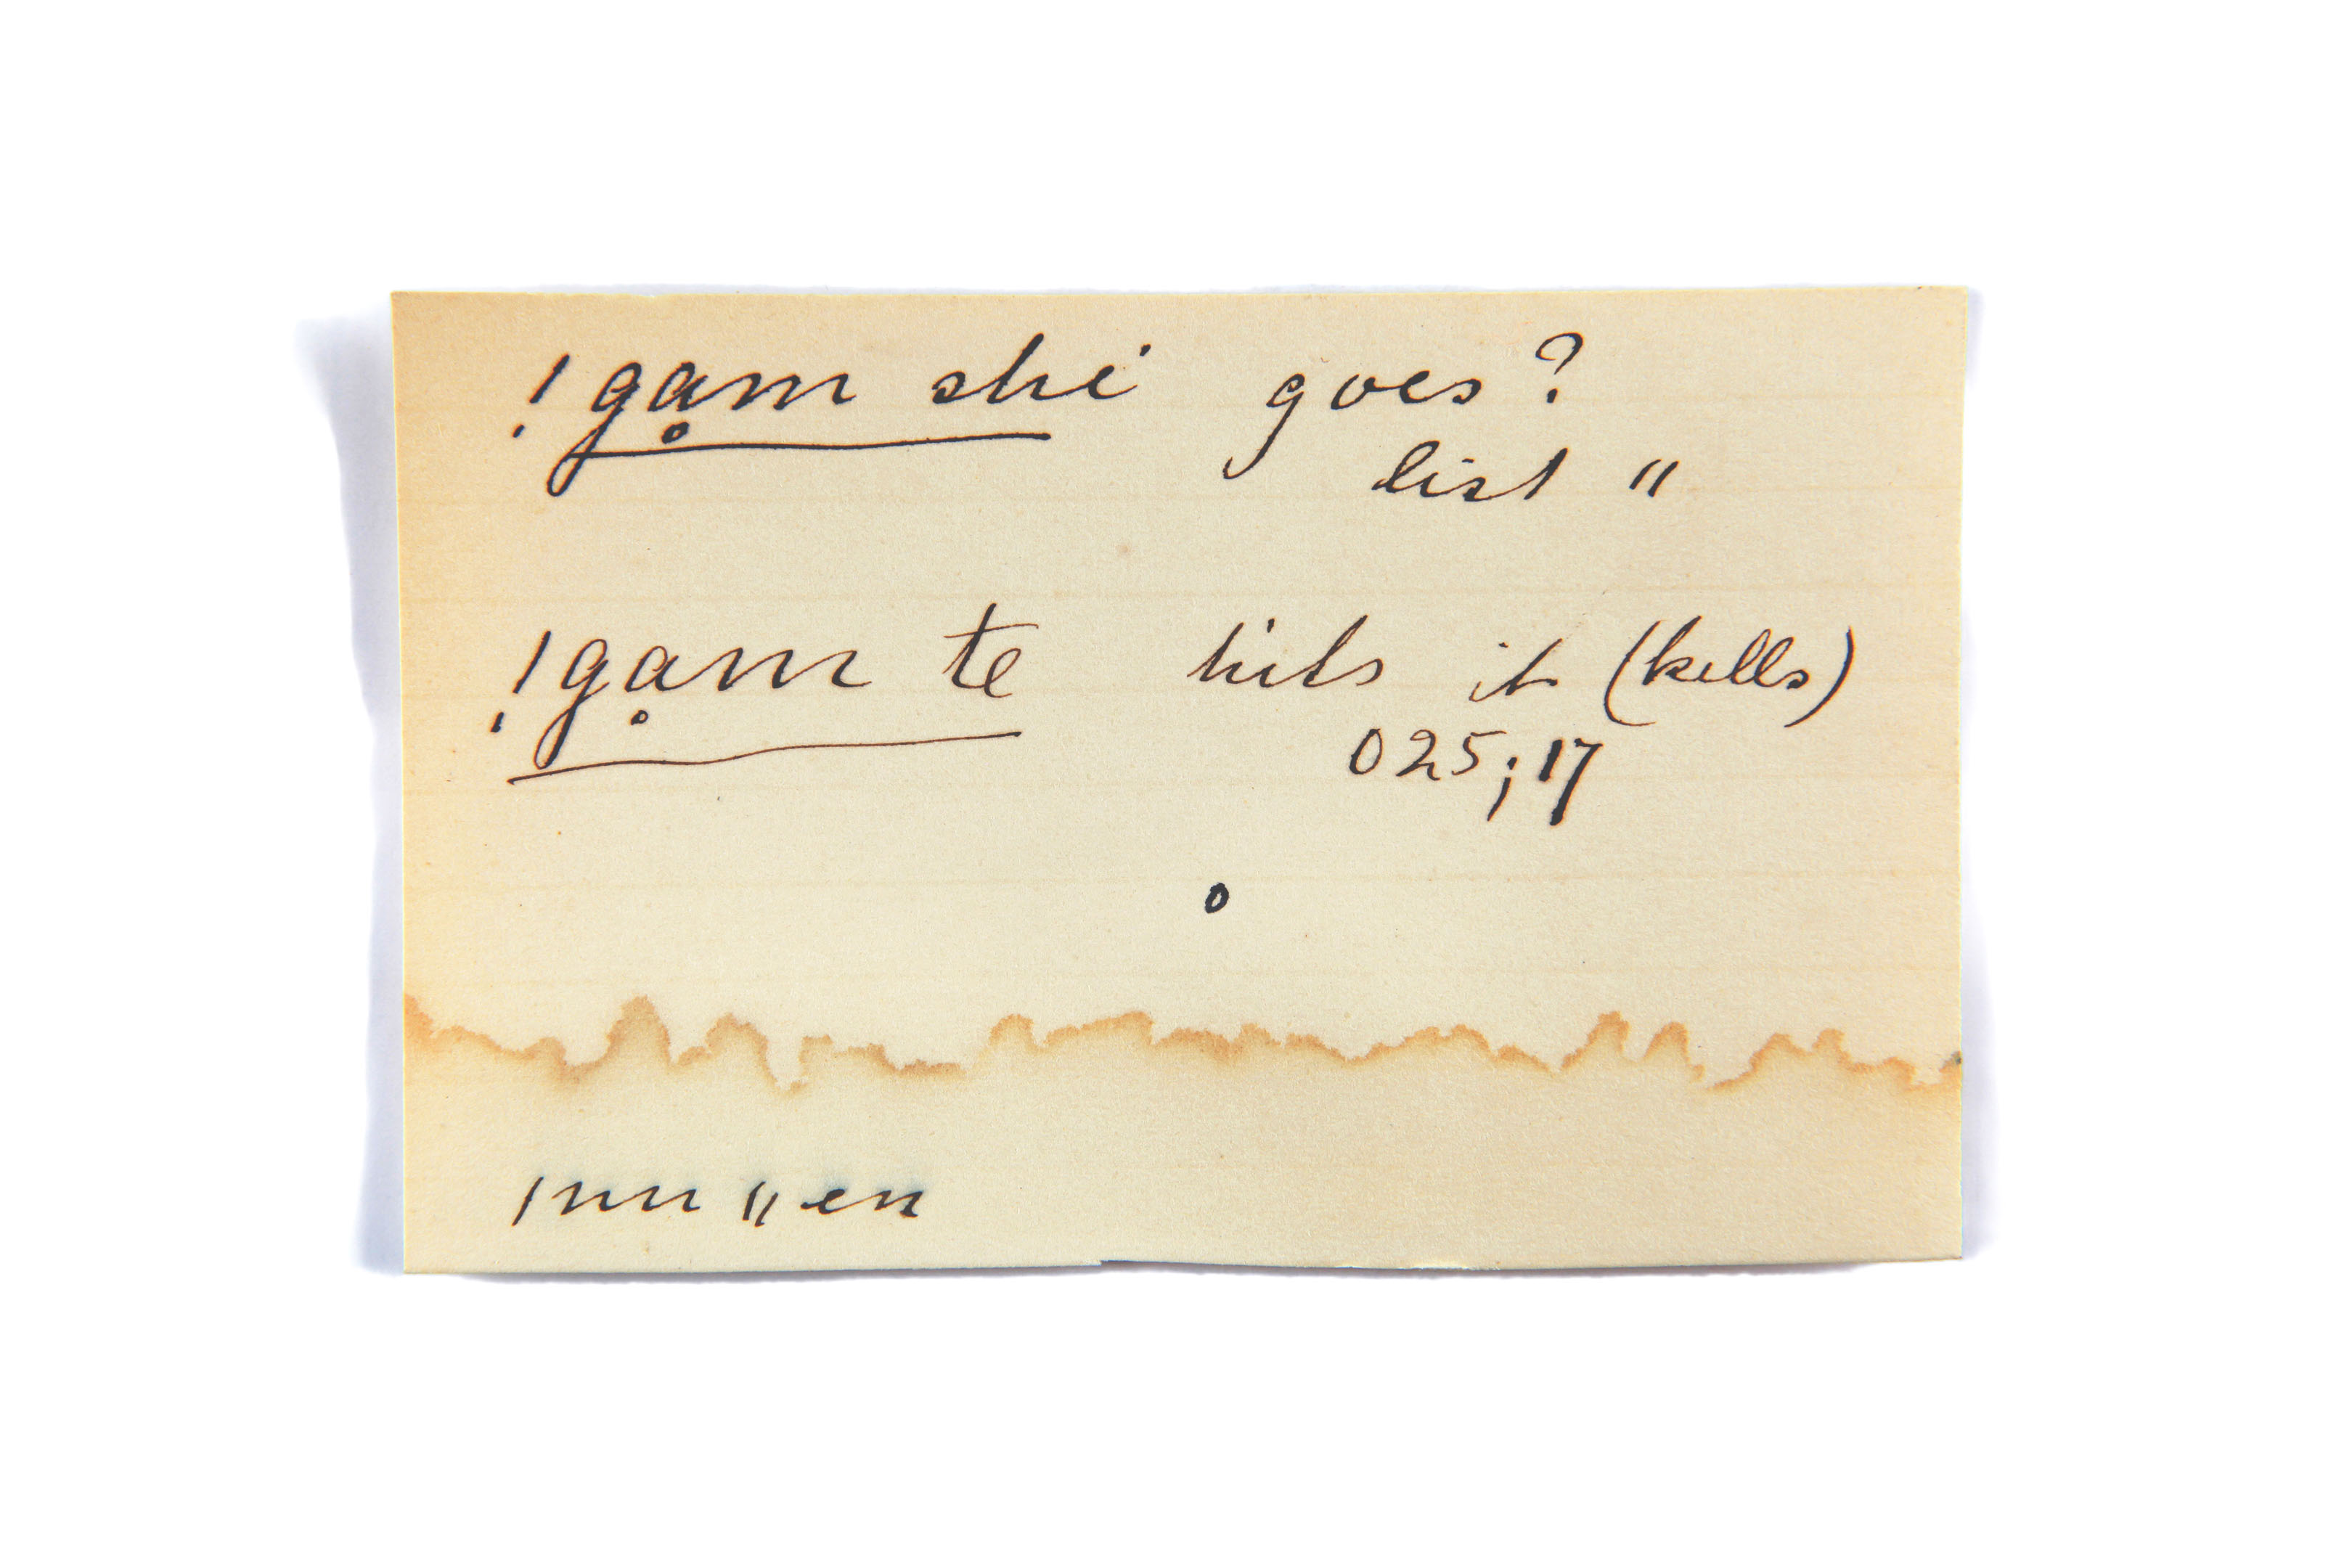 !gḁm shi goes?
list "
!gḁm te hits it (kills)
025;17
o
/nu //en